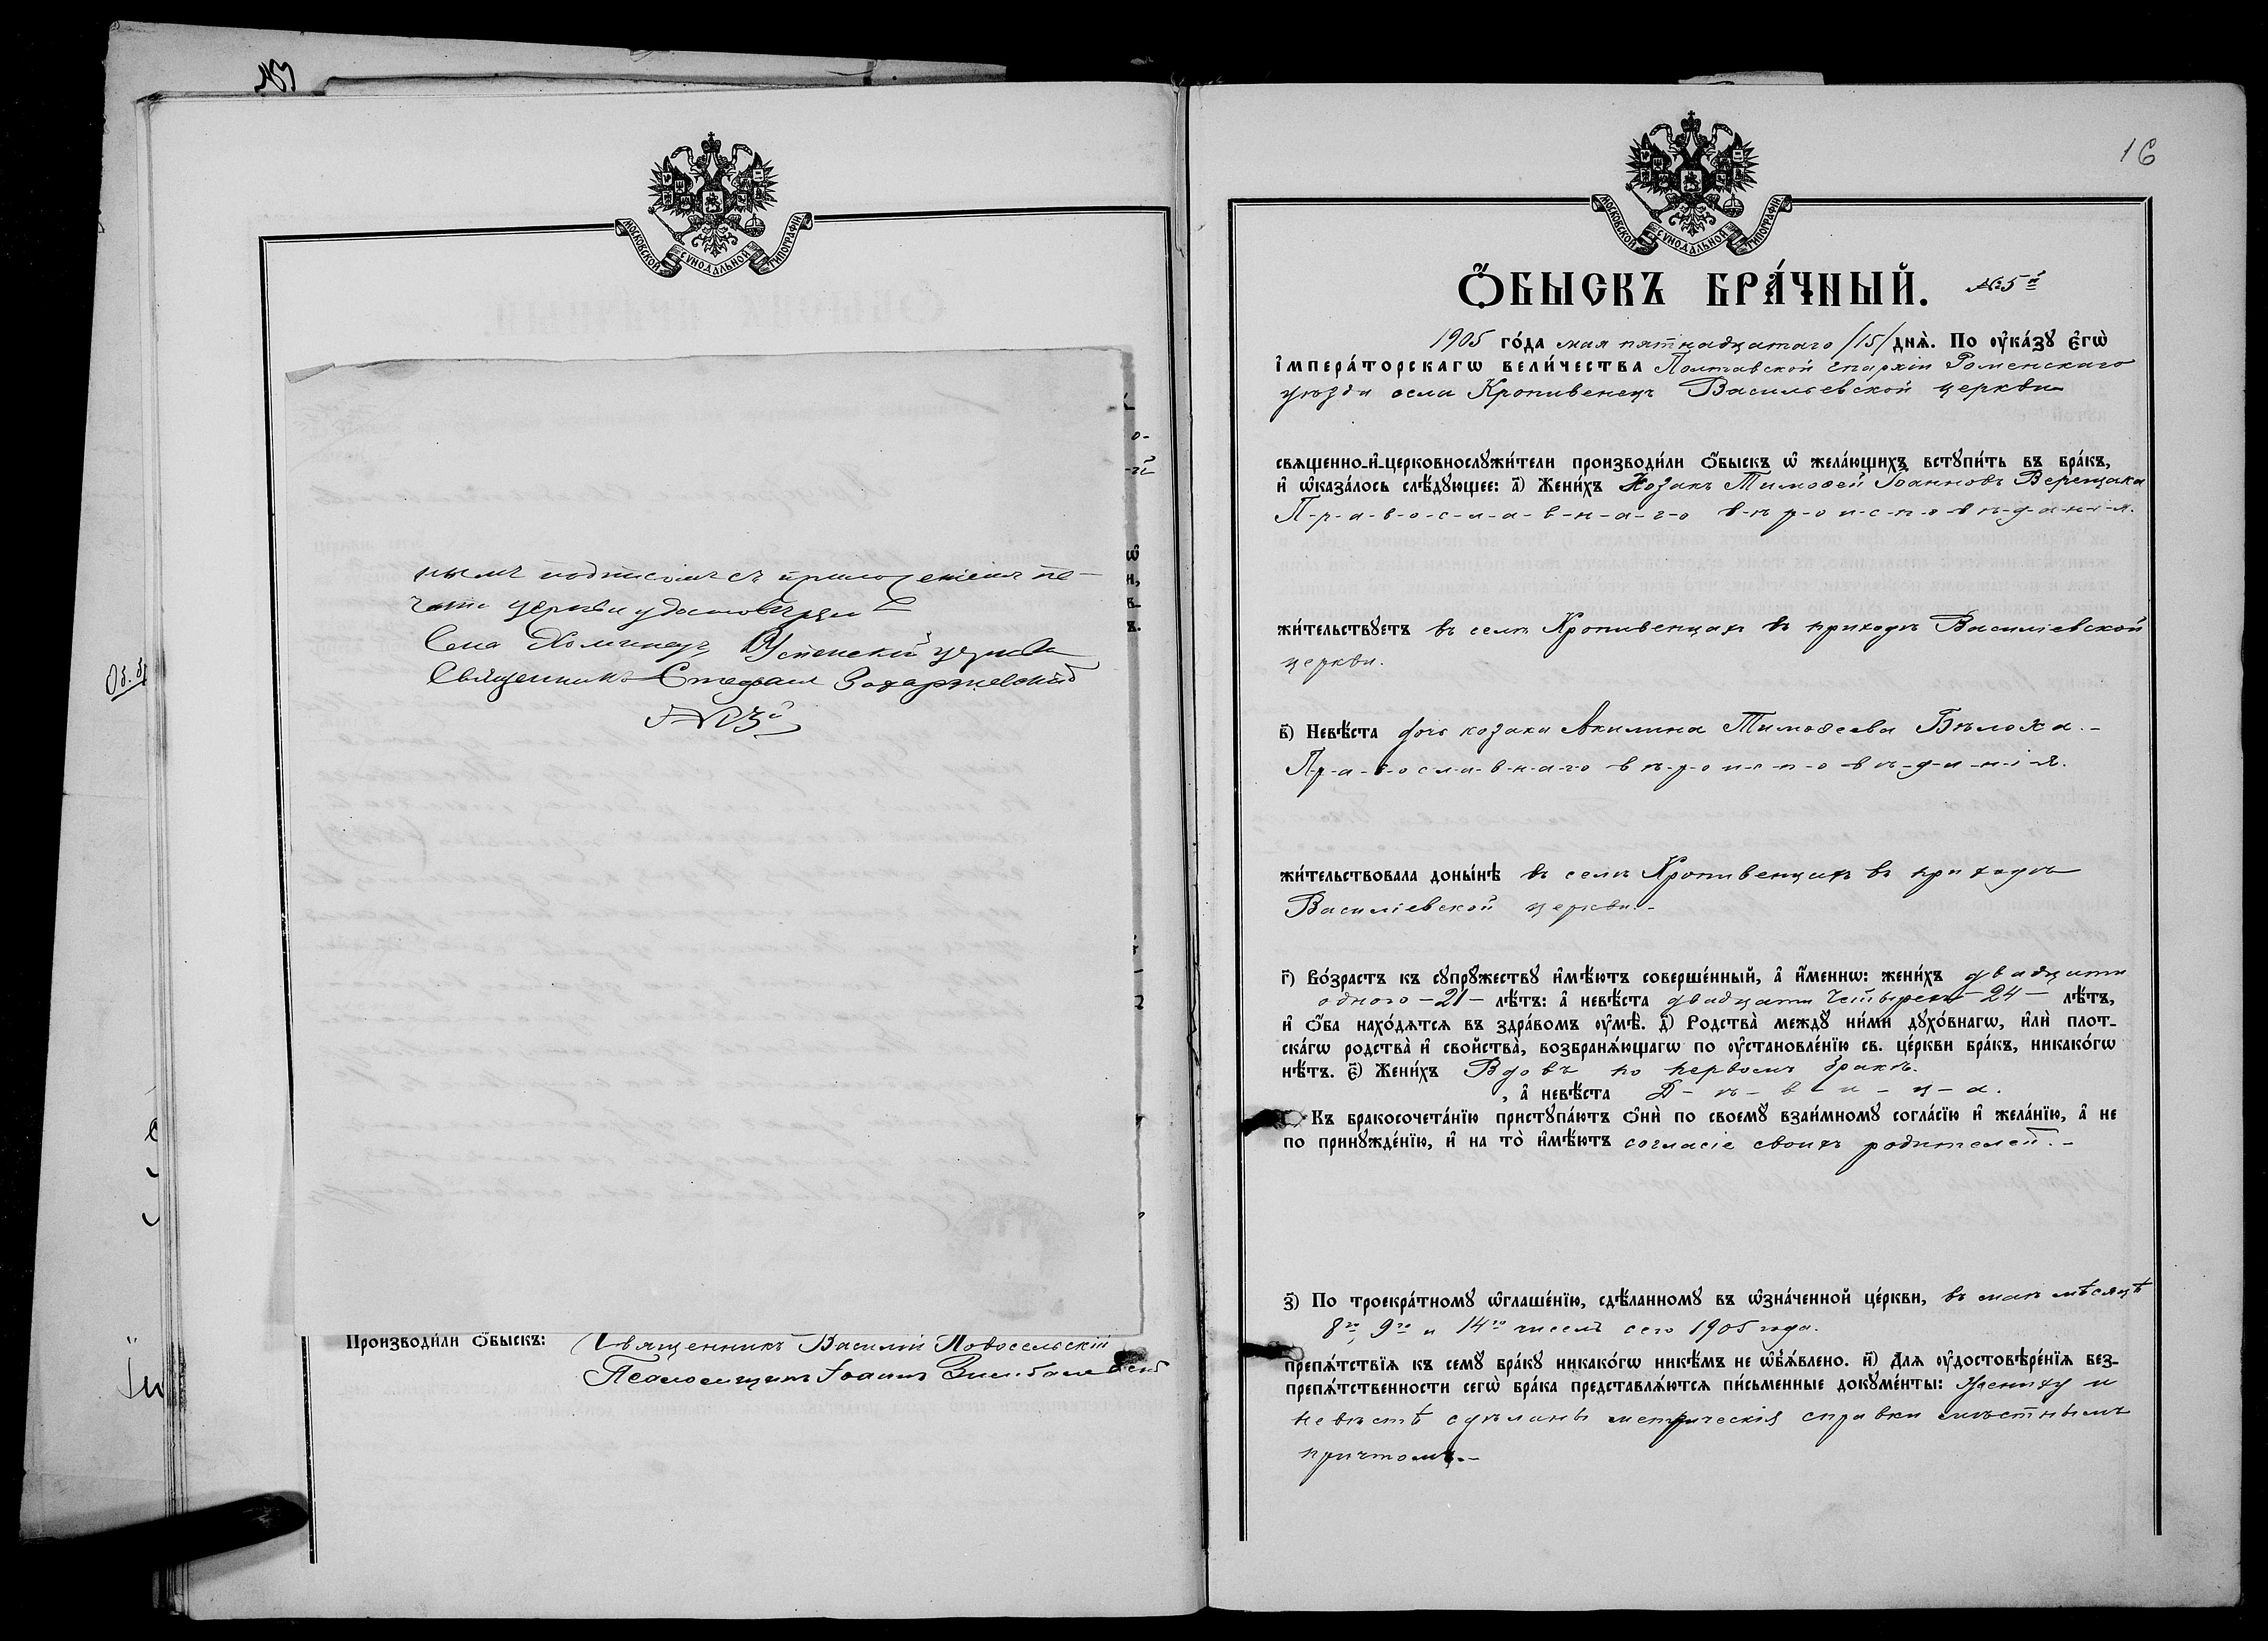 МОСКОВСКОЙ СѴНОДАЛЬНОЙ ТИПОГРАФІИ
нымъ подписомъ съ приложеніемъ пе-
чати церкви удостовѣряю
Села Успенской церкви
Священникъ Стефанъ
№ 3й
Производи́ли ѻ҆́быскъ: Священникъ Василій Новосельскій
Псаломщикъ Іоаннъ
16
МОСКОВСКОЙ СѴНОДАЛЬНОЙ ТИПОГРАФІИ
Ѻ҆́БЫСКЪ БРА́ЧНЫЙ. № 5й
1905 го́да мая пятнадцатаго /15/ днѧ̀. По оу҆ка́зꙋ є҆гѡ̀
і҆мпера́торскагѡ вели́чества Полтавской епархіи Роменскаго
уѣзда села Кропивенецъ Васильевской церкви
свѧщенно-и҆-церковнослꙋжи́тели производи́ли ѻ҆́быскъ ѡ҆ жела́ющихъ встꙋпи́ть въ бра́къ,
и҆ ѡ҆каза́лось слѣ́дꙋющее: а҃) Жени́хъ Козакъ Тимоѳей Іоанновъ Верещака
П-р-а-в-о-с-л-а-в-н-а-г-о в-ѣ-р-о-и-с-п-о-в-ѣ-д-а-н-і-я.
жи́тельствꙋетъ въ селѣ Кропивенцахъ въ приходѣ Василіевской
церкви.
в҃) Невѣ́ста дочь козака Акилина Тимоѳеева Бѣлоха.-
П-р-а-в-о-с-л-а-в-н-а-г-о в-ѣ-р-о-и-с-п-о-в-ѣ-д-а-н-і-я.
жи́тельствовала доны́нѣ въ селѣ Кропивенцахъ въ приходѣ
Василіевской церкви.-
г҃) Во́зрастъ къ сꙋпрꙋ́жествꙋ и҆мѣ́ютъ соверше́нный, а҆ и҆́меннѡ: жени́хъ двадцати
одного -21- лѣ́тъ: а҆ невѣ́ста двадцати четырехъ- 24 - лѣ́тъ,
и҆ ѻ҆́ба нахо́дѧтсѧ въ здра́вомъ оу҆мѣ̀. д҃) Родства̀ междꙋ̀ ни́ми дꙋхо́внагѡ, и҆лѝ плот-
ска́гѡ родства̀ и҆ свойства̀, возбранѧ́ющагѡ по оу҆становле́нїю св. це́ркви бра́къ, никако́гѡ
нѣ́тъ. є҃) Жени́хъ Вдовъ по первомъ бракѣ.
, а҆ невѣ́ста Д-ѣ-в-и-ц-а.
Къ бракосочета́нїю пристꙋпа́ютъ ѻ҆нѝ по своемꙋ̀ взаи́мномꙋ согла́сїю и҆ жела́нїю, а҆ не
по принꙋжде́нїю, и҆ на то̀ и҆мѣ́ютъ согласіе своихъ родителей.-
з҃) По троекра́тномꙋ ѡ҆глаше́нїю, сдѣ́ланномꙋ въ ѡ҆зна́ченной це́ркви, въ маѣ мѣсяцѣ
8го, 9го и 14го чиселъ сего 1905 года.
препѧ́тствїѧ къ семꙋ̀ бра́кꙋ никако́гѡ никѣ́мъ не ѡ҆б̾ѧ́влено. и҃) Длѧ оу҆достовѣре́нїѧ без-
препѧ́тственности сегѡ̀ бра́ка представлѧ́ютсѧ пи́сьменные докꙋме́нты: жениху и
невѣстѣ сдѣланы метрическія справки мѣстнымъ
причтомъ.-